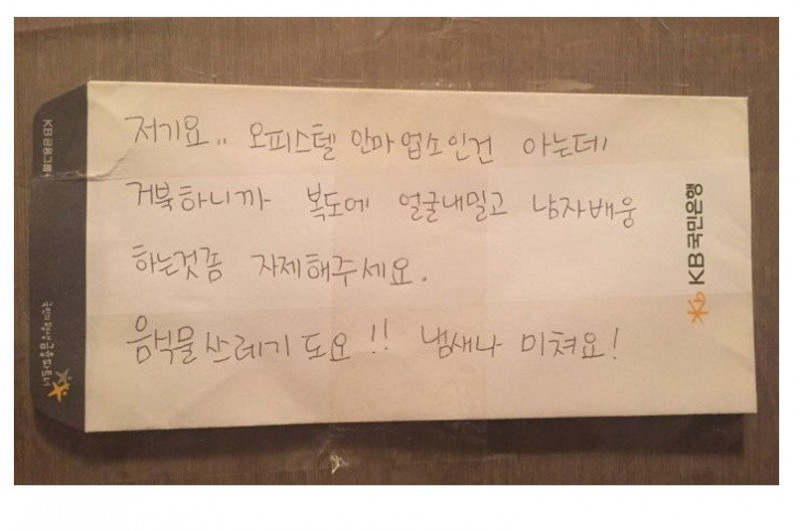 저기요.. 오피스텔 안마업소인건 아는데
거북하니까 복도에 얼굴내밀고 남자배웅
하는것좀 자제해주세요.
음식물쓰레기도요!! 냄새나 미쳐요!
KB국민은행